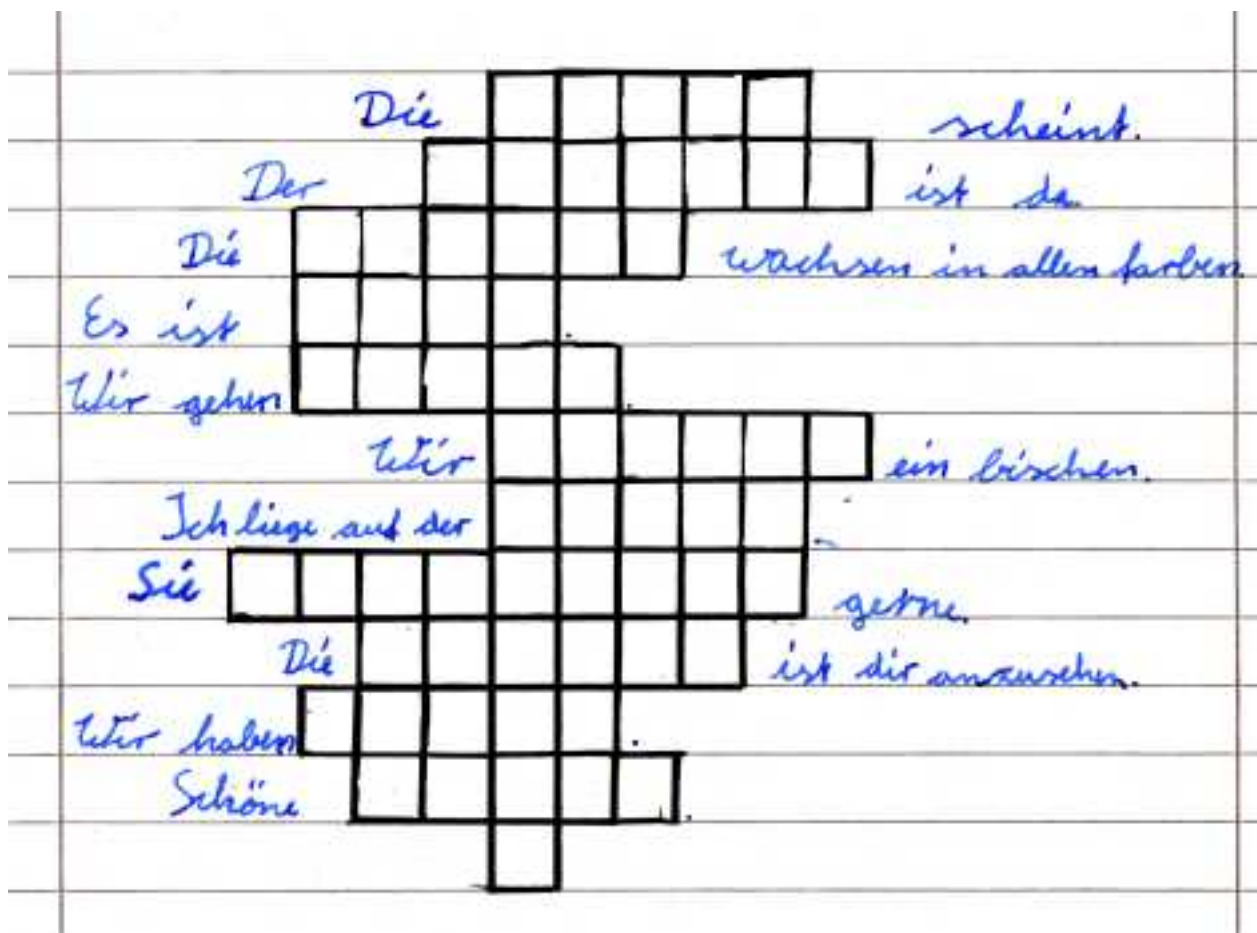 Die scheint.
Der ist da
Die wachsen in allen farben.
Es ist .
Wir gehen .
Wir ein bischen.
Ich liege auf der .
Sie gerne.
Die ist dir anzusehen.
Wir haben .
Schöne .